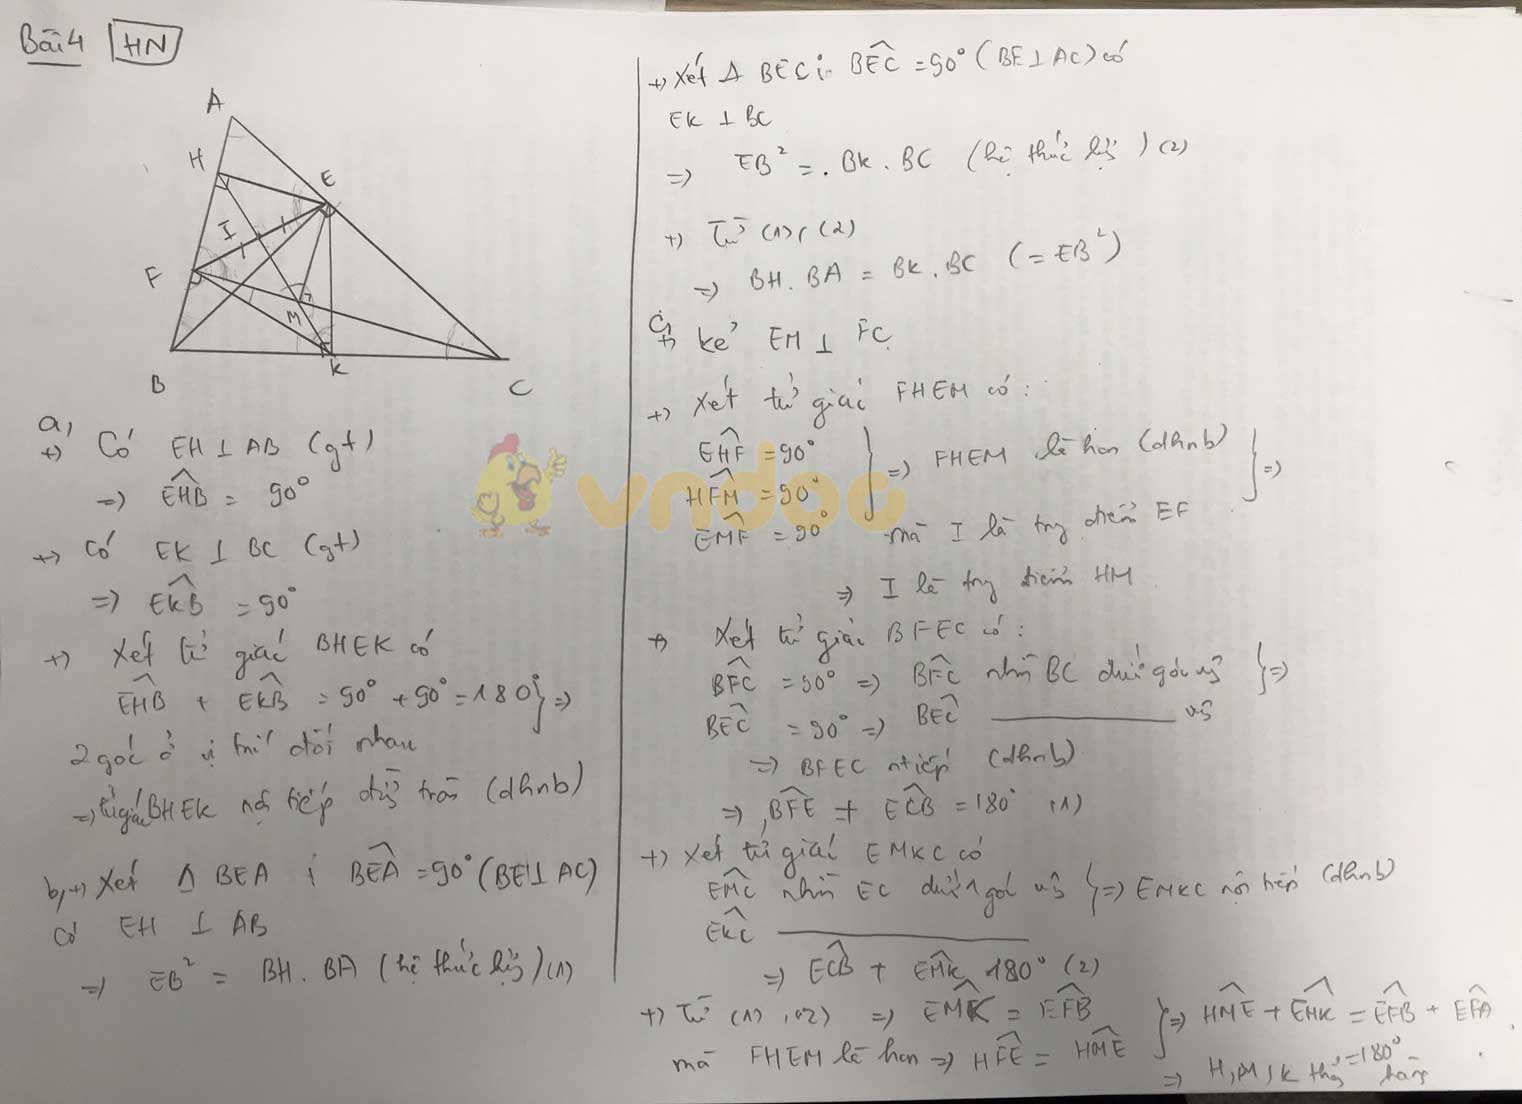 Bài 4 HN
A
H
E
I
F
M
B
K
C
a,
+) Có EH ⊥ AB (gt)
=> EHB = 90°
+) Có EK ⊥ BC (gt)
=> EKB = 90°
+) Xét tứ giác BHEK có
EHB + EKB = 90° + 90° = 180° } =>
2 góc ở vị trí đối nhau
=> tứ giác BHEK nội tiếp đg tròn (dhnb)
b, +) Xét Δ BEA ; BEA = 90° (BE ⊥ AC)
có EH ⊥ AB
=> EB² = BH . BA (hệ thức lg) (1)
+) Xét Δ BEC ; BEC = 90° (BE ⊥ AC) có
EK ⊥ BC
=> EB² = . BK . BC (hệ thức lg) (2)
+) Từ (1), (2)
=> BH . BA = BK . BC (= EB²)
c,
+) kẻ EM ⊥ FC
+) Xét tứ giác FHEM có :
EHF = 90°
HFM = 90° } => FHEM là hcn (dhnb) } =>
EMF = 90° mà I là trg điểm EF
=> I là trg điểm HM
+) Xét tứ giác BFEC có :
BFC = 90° => BFC nhìn BC dưới góc vg } =>
BEC = 90° => BEC vg
=> BFEC ntiếp (dhnb)
=> BFE + ECB = 180° (1)
+) Xét tứ giác EMKC có
EMC nhìn EC dưới 1 góc vg } => EMKC nội tiếp (dhnb)
EKC
=> ECB + EMK 180° (2)
+) Từ (1), (2) => EMK = EFB
mà FHEM là hcn => HFE = HME } => HME + EMK = EFB + EFA
= 180°
=> H, M, K thẳng hàng
vndoc